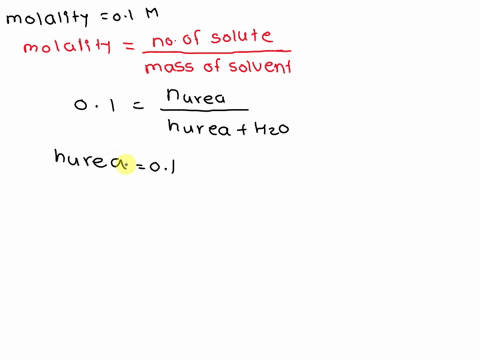 molality = 0.1 M
molality = no. of solute / mass of solvent
0.1 = nurea / hurea + H2O
hurea = 0.1